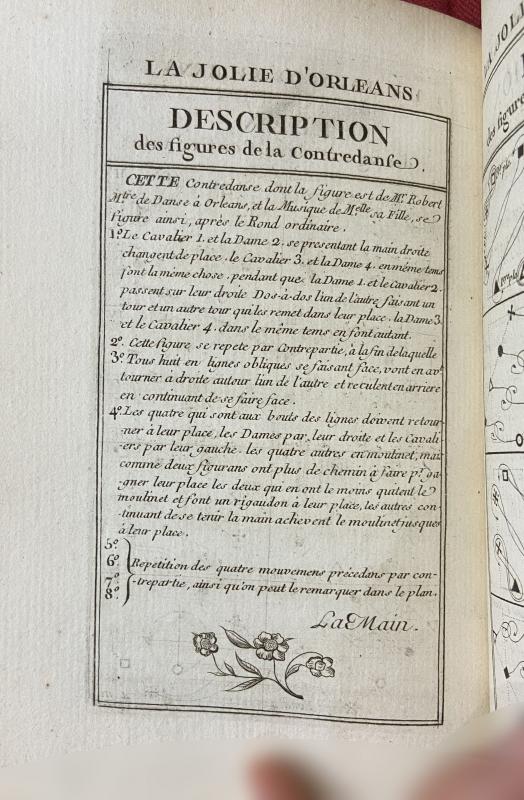 LA JOLIE D'ORLEANS
DESCRIPTION
des figures de la Contredanse.
CETTE Contredanse dont la figure est de Mr. Robert
Mtre de Danse à Orleans, et la Musique de Melle sa Fille, se
figure ainsi, après le Rond ordinaire.
1º. Le Cavalier 1. et la Dame 2. se presentant la main droite
changent de place. le Cavalier 3. et la Dame 4. en même tems
font la même chose, pendant que la Dame 1. et le Cavalier 2.
passent sur leur droite Dos-à-dos l'un de l'autre faisant un
tour et un autre tour qui les remet dans leur place. la Dame 3.
et le Cavalier 4. dans le même tems en font autant.
2º. Cette figure se repete par Contrepartie, à la fin de laquelle
3º. Tous huit en lignes obliques se faisant face, vont en avt.
tourner a droite autour l'un de l'autre et reculent en arriere
en continuant de se faire face.
4º. Les quatre qui sont aux bouts des lignes doivent retour-
-ner à leur place, les Dames par leur droite et les Cavali-
-ers par leur gauche. les quatre autres en moulinet, mais
comme deux figurans ont plus de chemin à faire pr. ga-
-gner leur place les deux qui en ont le moins quitent le
moulinet et font un rigaudon à leur place, les autres con-
-tinuant de se tenir la main achevent le moulinet jusques
à leur place.
5º.
6º.
7º.
8º.
Repetition des quatre mouvemens précedans par con-
-trepartie, ainsi qu'on peut le remarquer dans le plan.
La Main.
LA JOLI
des figures